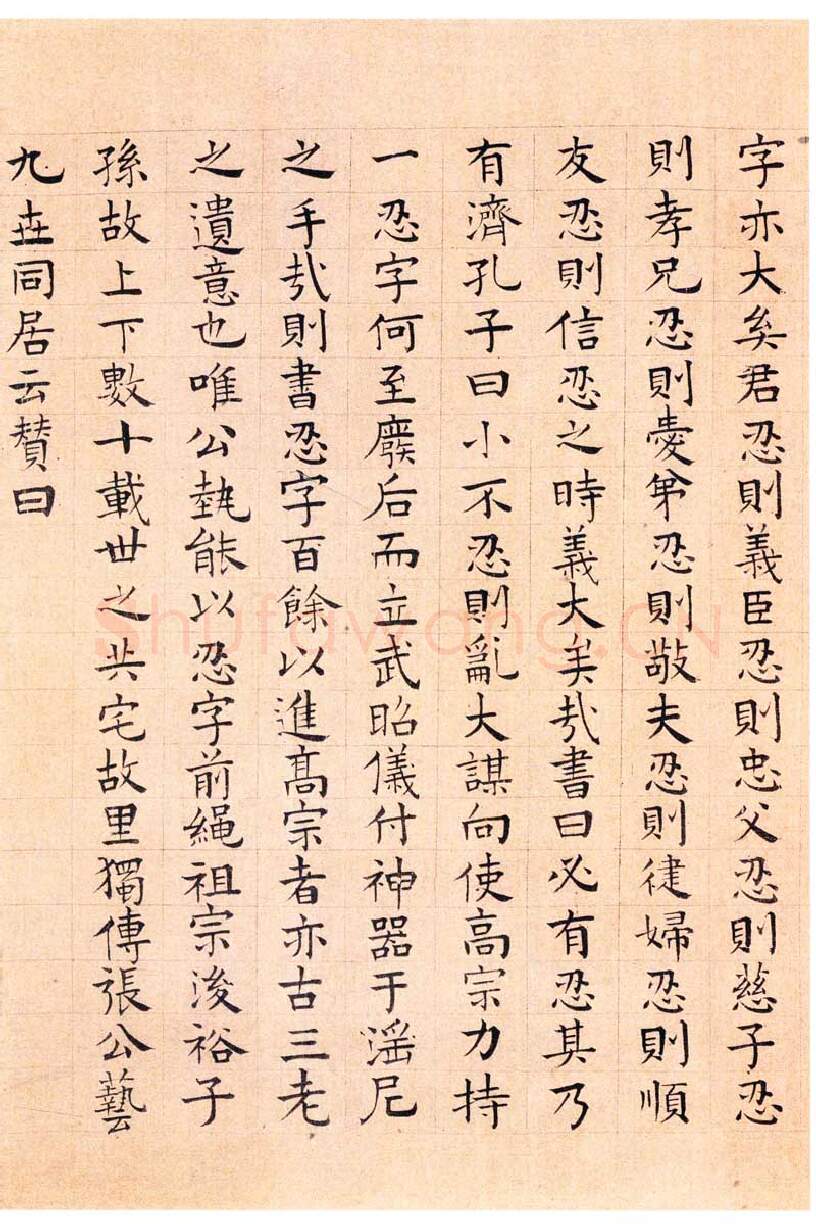 字亦大矣君忍則義臣忍則忠父忍則慈子忍
則孝兄忍則愛弟忍則敬夫忍則律婦忍則順
友忍則信忍之時義大矣哉書曰必有忍其乃
有濟孔子曰小不忍則亂大謀向使高宗力持
一忍字何至廢后而立武昭儀付神器于滛尼
之手哉則書忍字百餘以進髙宗者亦古三老
之遺意也唯公執能以忍字前繩祖宗後裕子
孫故上下數十載世之共宅故里獨傳張公藝
九世同居云贊曰
shufawang.CN